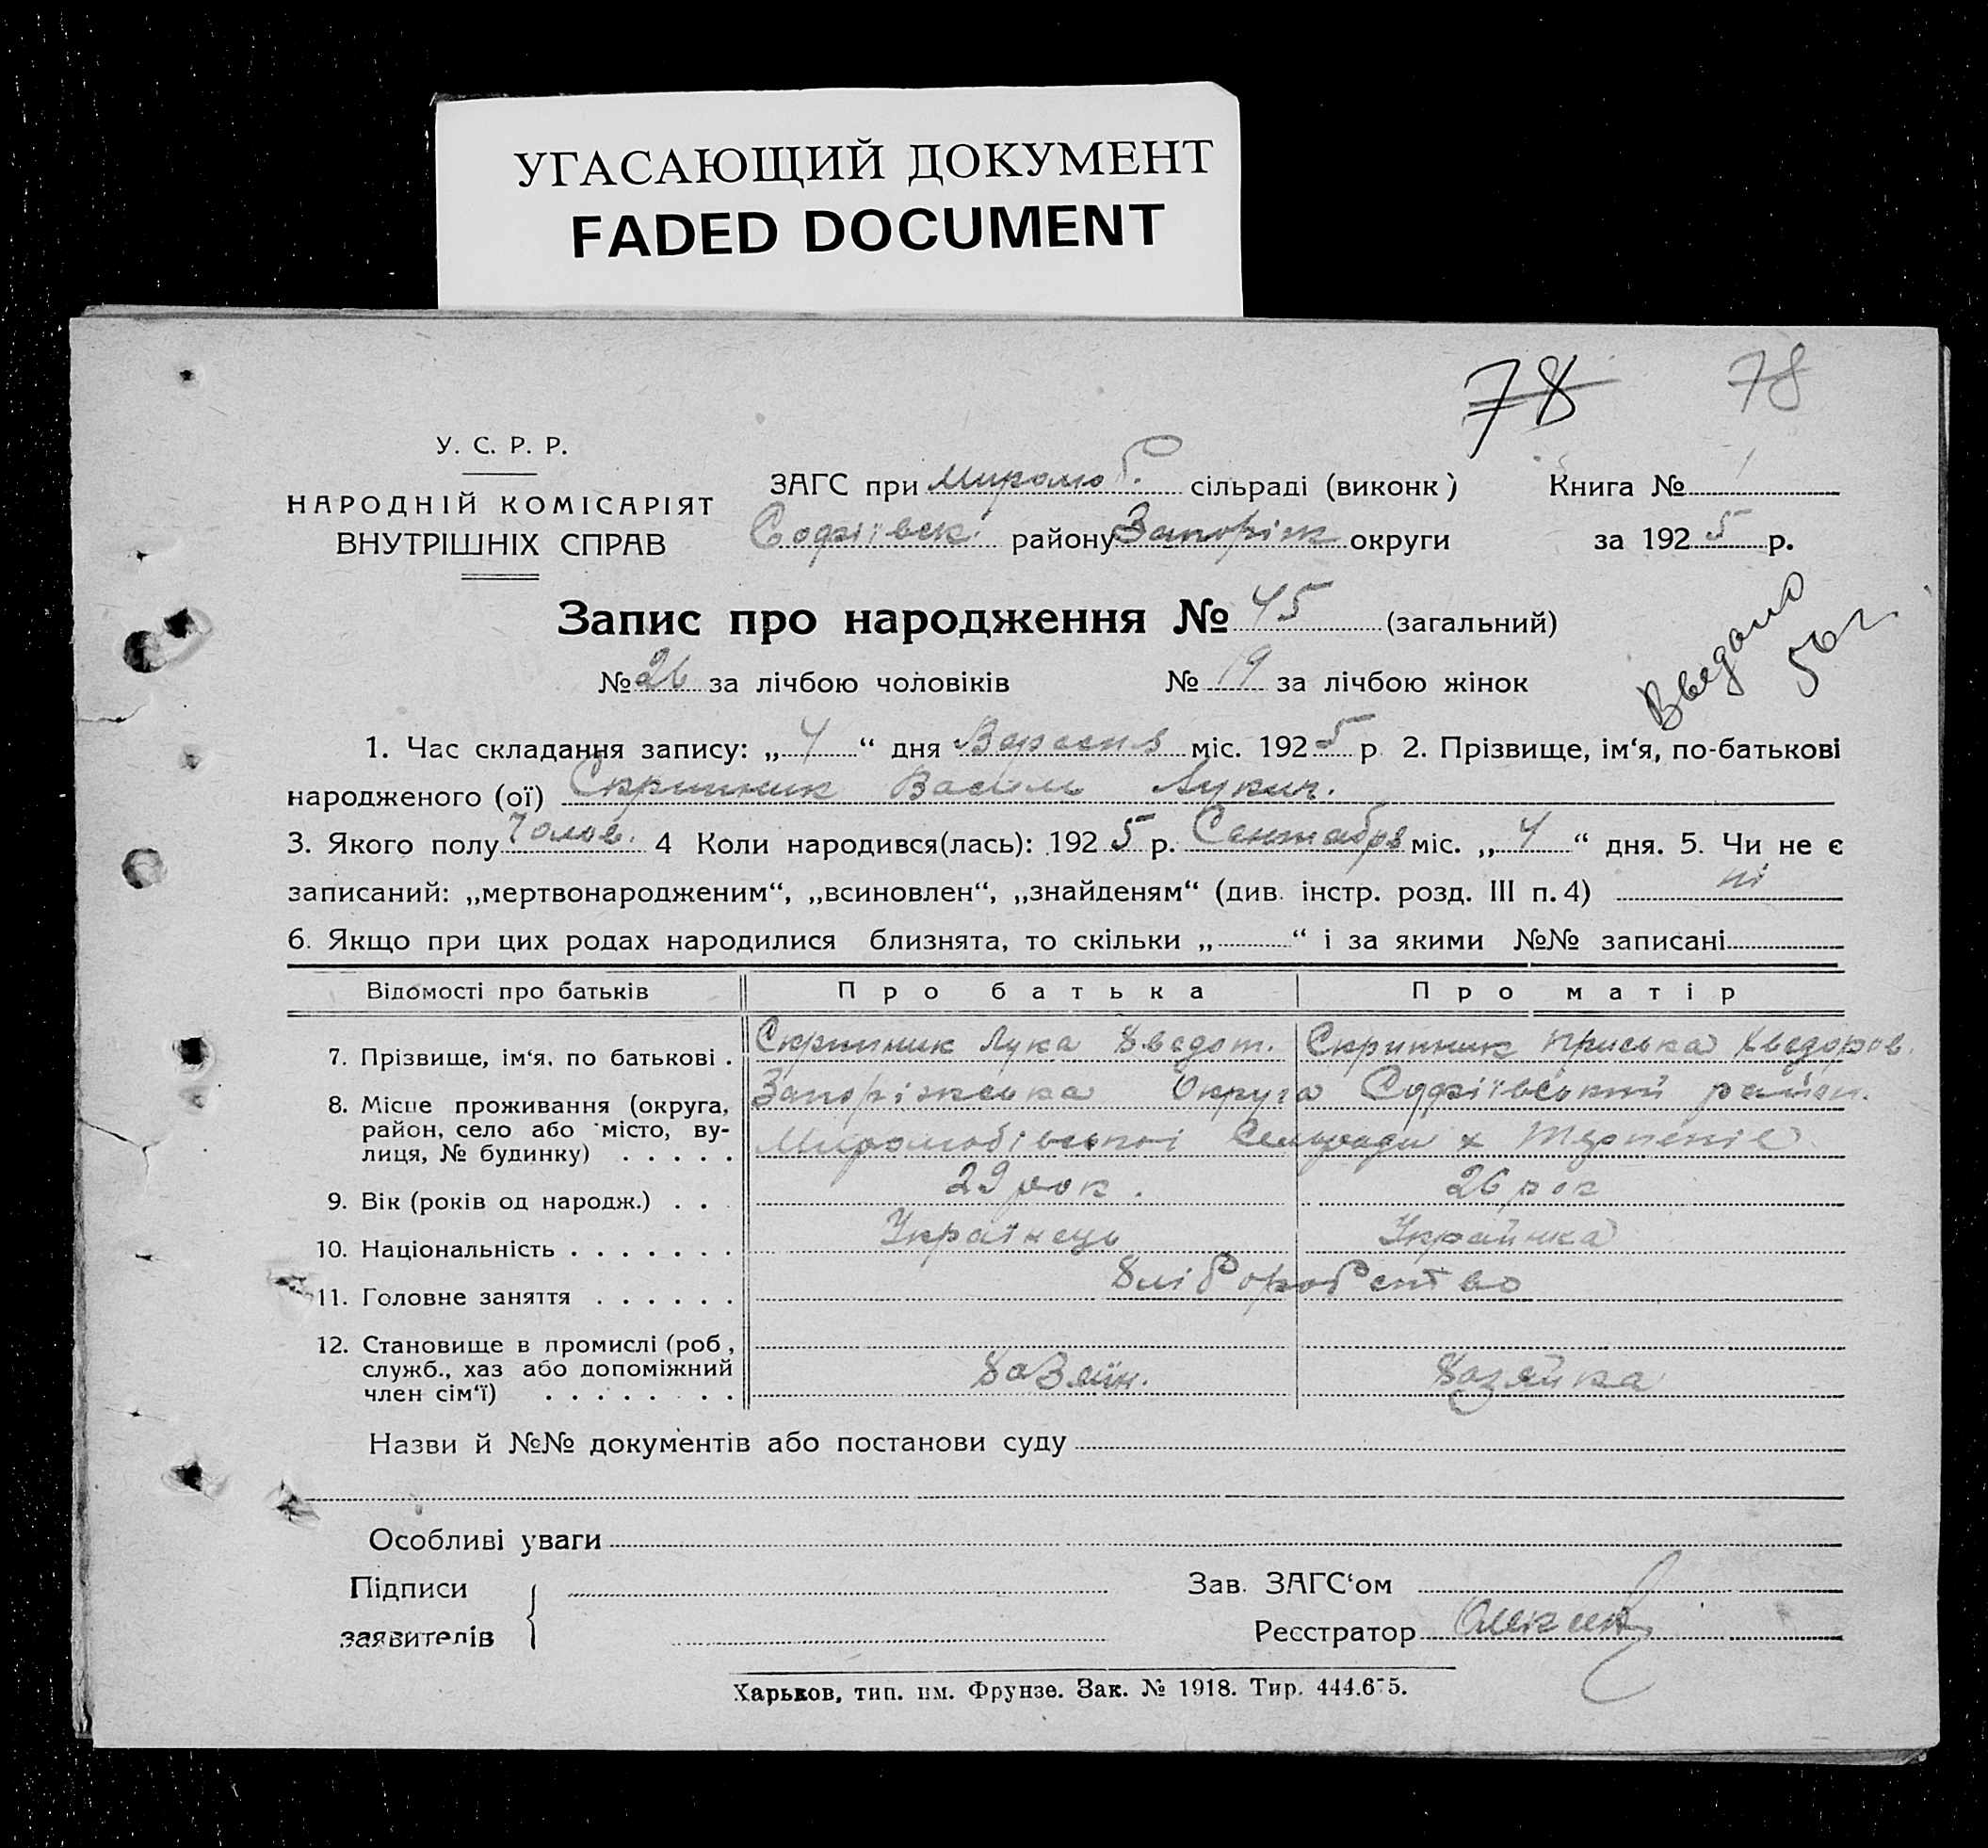 УГАСАЮЩИЙ ДОКУМЕНТ
FADED DOCUMENT
78 78
У. С. Р. Р.
НАРОДНІЙ КОМІСАРІЯТ
ВНУТРІШНІХ СПРАВ
ЗАГС при Миролюб. сільраді (виконк) Книга № 1
Софіївськ. району Запоріж округи за 1925 р.
Запис про народження № 45 (загальний)
№ 26 за лічбою чоловіків № 19 за лічбою жінок
Введено
56 г
1. Час складання запису: „4“ дня Вересня міс. 1925 р 2. Прізвище, ім‘я, по-батькові
народженого (ої) Скрипник Васіль Лукич.
3. Якого полу Чолов. 4 Коли народився(лась): 1925 р. Сентабря міс. „4“ дня. 5. Чи не є
записаний: „мертвонародженим“, „всиновлен“, „знайденям“ (див. інстр. розд. III п. 4) ні
6. Якщо при цих родах народилися близнята, то скільки „ “ і за якими №№ записані
Відомості про батьків Про батька Про матір
7. Прізвище, ім‘я, по батькові . Скрипник Лука Скрипник Приська Хведоров.
8. Місце проживання (округа, Запоріжська Округа Софіївський район.
район, село або місто, ву-
лиця, № будинку) . . . . . Миролюбівської Сельради х
9. Вік (років од народж.) . . 29 рок. 26 рок
10. Національність . . . . . . . Українець Українка
11. Головне заняття . . . . . . Хліборобство
12. Становище в промислі (роб,
служб., хаз або допоміжний Хазяїн. Хазяйка
член сім‘ї) . . . . . . . .
Назви й №№ документів або постанови суду
Особливі уваги
Підписи
заявителів
Зав. ЗАГС‘ом
Реєстратор
Харьков, тип. им. Фрунзе. Зак. № 1918. Тир. 444.675.